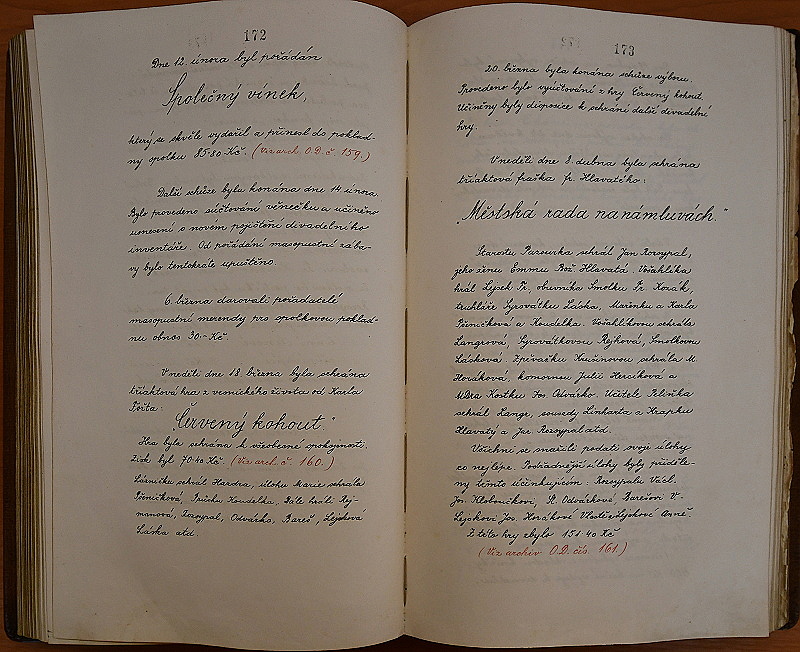 172
Dne 12. února byl pořádán
Společný vínek,
který se skvěle vydařil a přinesl do poklad-
ny spolku 85·80 Kč. (Viz arch. O.D. č. 159.)
Další schůze byla konána dne 14 února.
Bylo provedeno súčtování věnečku a učiněno
usnesení o novem pojištění divadelního
inventáře. Od pořádání masopustní zába-
vy bylo tentokráte upuštěno.
6. března darovali pořadatelé
masopustní merendy pro spolkovou poklad-
nu obnos 30·- Kč.
V neděli dne 18. března byla sehrána
tříaktová hra z vesnického života od Karla
Fořta:
"Červený kohout."
Hra byla sehrána k všeobecné spokojenosti.
Zisk byl 70·40 Kč. (Viz arch. č. 160.)
sehrál Hardra, úlohu Marie sehrála
Pšeničková, Koudelka. Dále hráli: Rej-
manová, Rozsypal, Odvárko, Bareš, Lejsková
Láska atd.
173
20. března byla konána schůze výboru.
Provedeno bylo vyúčtování z hry Červený kohout.
Učiněny byly disposice k sehrání další divadelní
hry.
V neděli dne 8. dubna byla sehrána
tříaktová fraška fr. Hlavatého:
„Městská rada na námluvách."
Starostu Parourka sehrál Jan Rozsypal,
jeho ženu Emmu Bož. Hlavatá. Všehlíka
hrál Lejsek Fr., obuvníka Smolku Fr. Kozák,
truhláře Syrovátku Láska, Mařenku a Karla
Pšeničková a Koudelka. Všehlíkovou sehrála
Langrová, Syrovátkovou Rejková, Smolkovou
Lásková. Zpěvačku sehrála M.
Horáková, komornou Julii Hercíková a
MDra Kostku Jos. Odvárko. Učitele Pelíška
sehrál Langr, sousedy Linharta a Krapku
Hlavatý a Jar. Rozsypal atd.
Všichni se snažili podati svoji úlohy
co nejlépe. Podřadnější úlohy byly přiděle-
ny těmto účinkujícím: Rozsypalu Václ.
Jos. Klobnickovi, R. Odvárkové, Barešovi V.
Lejskovi Jos. Horákové Vlastě a Lejskové Anně.
Z této hry zbylo 151·40 Kč
(Viz archiv O.D. čís. 161.)